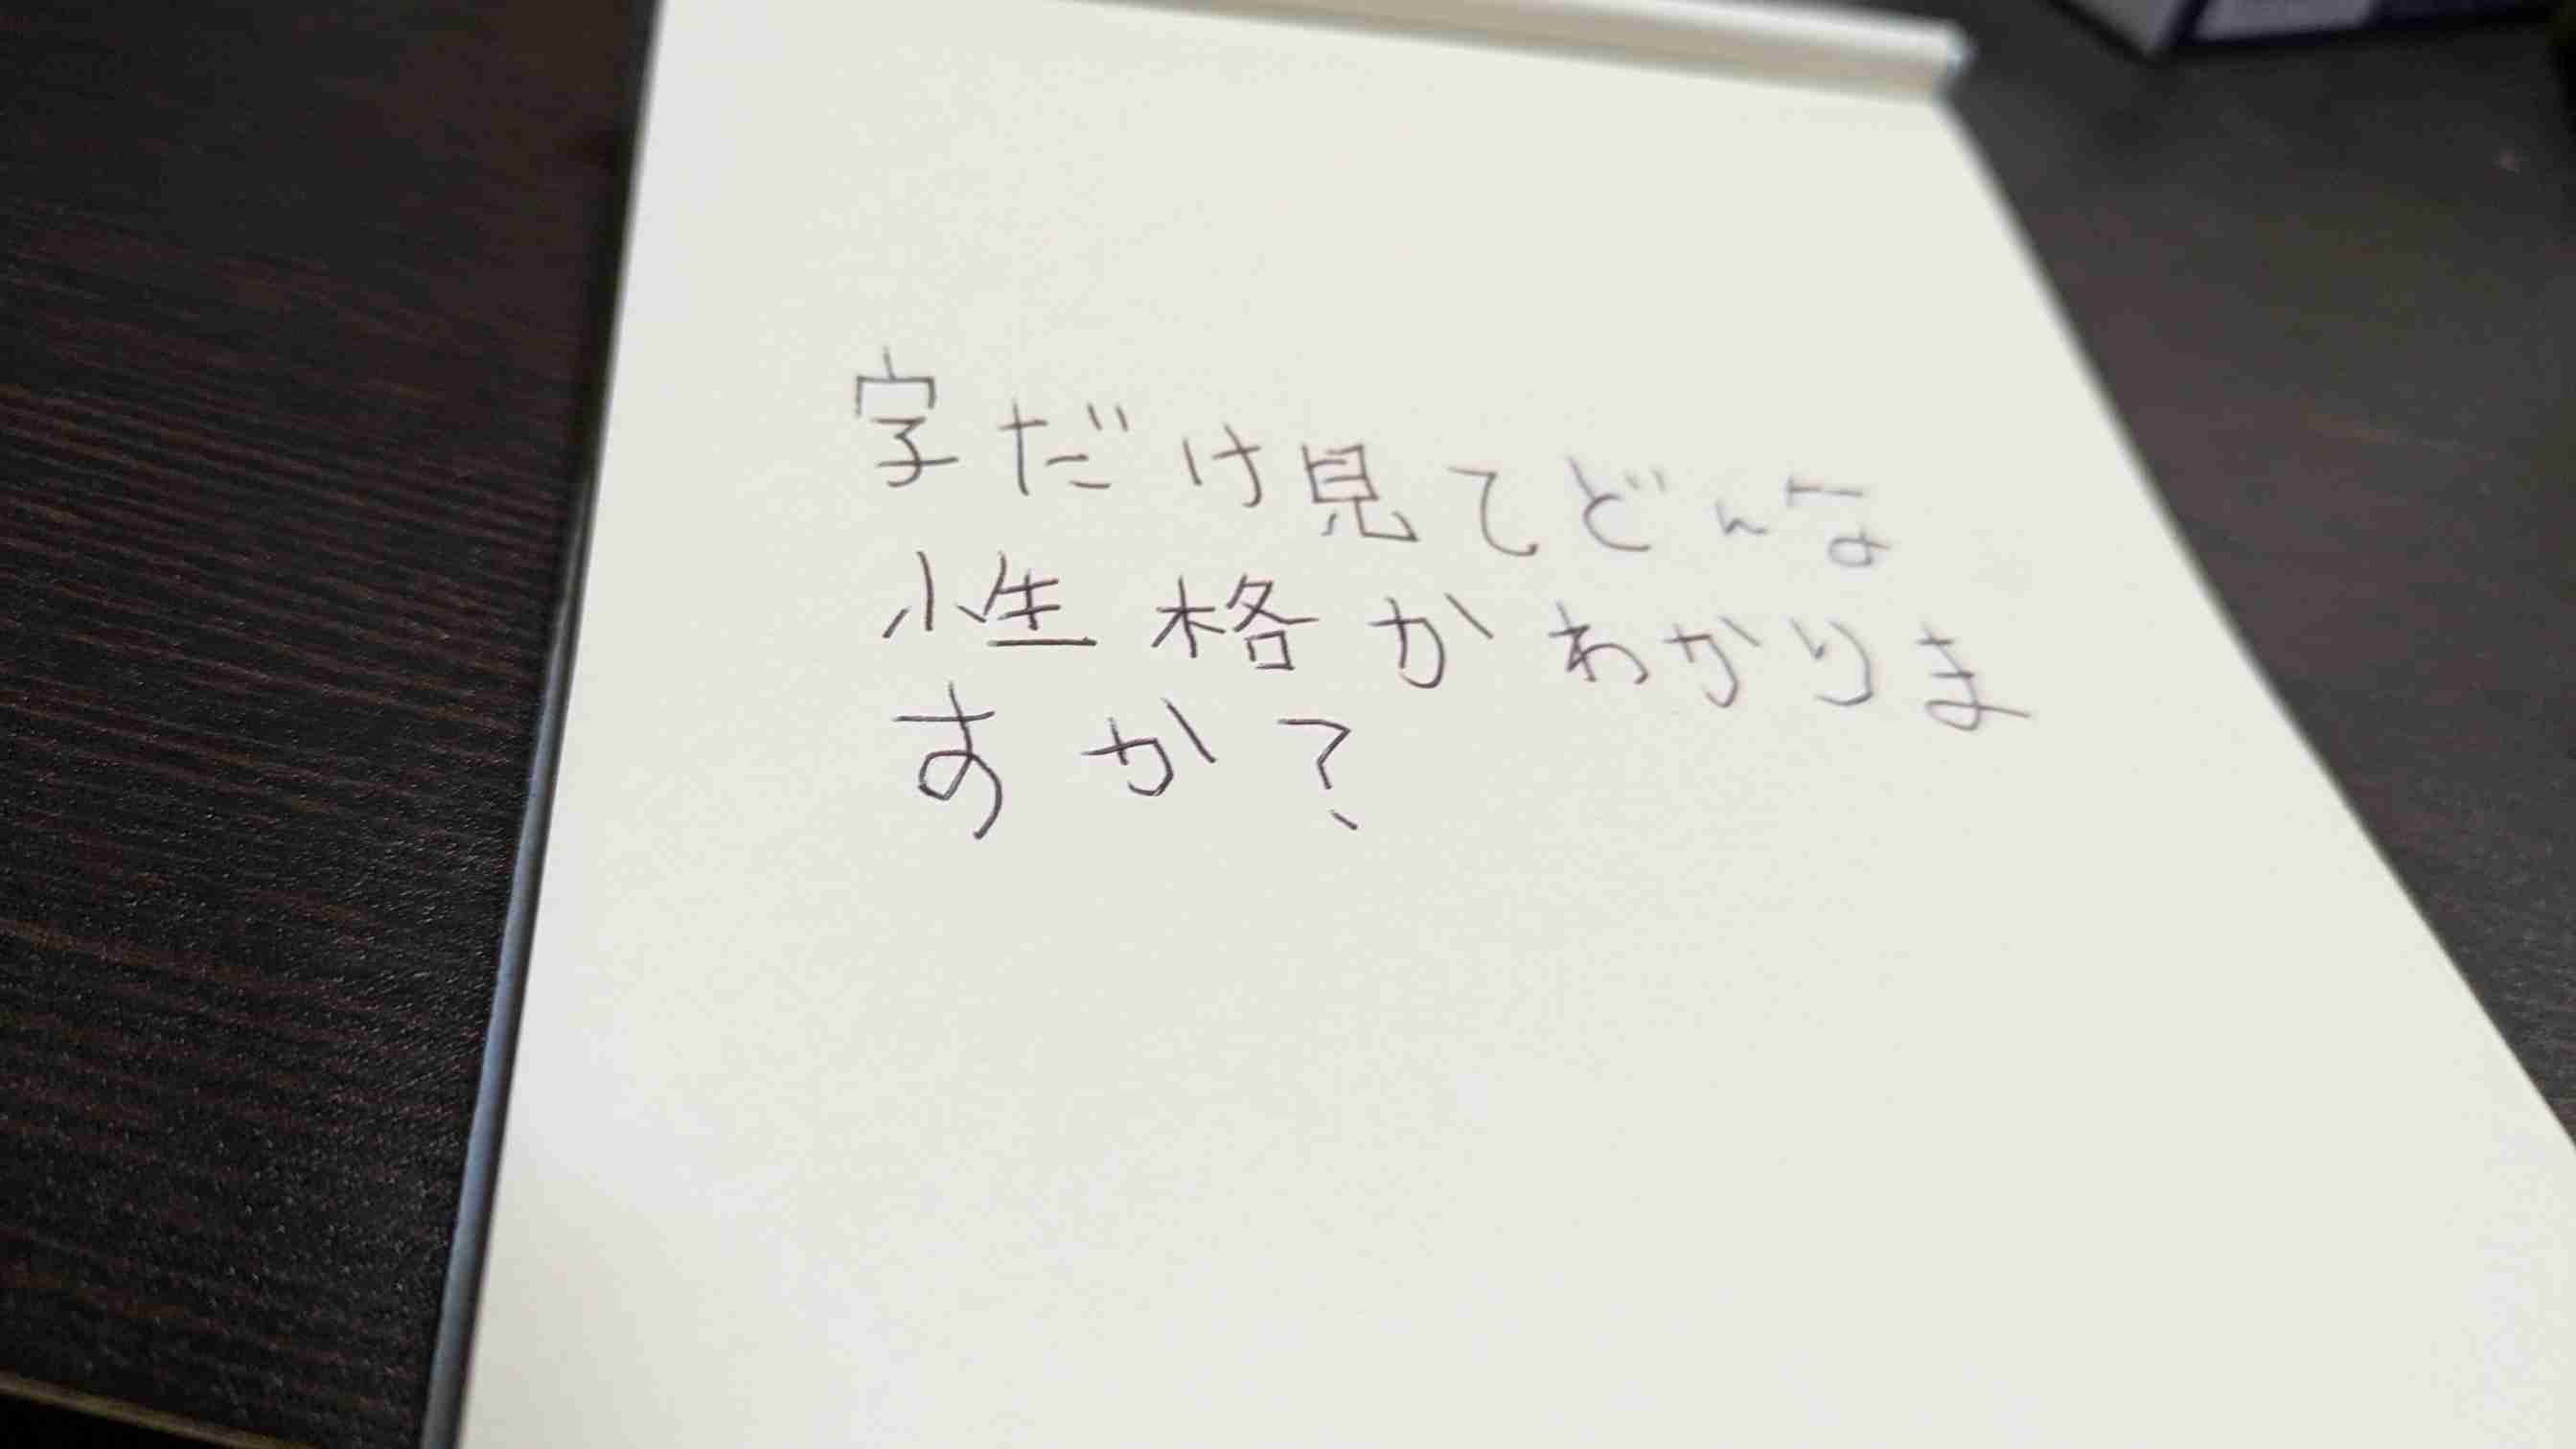 字だけ見てどんな
性格かわかりま
すか?